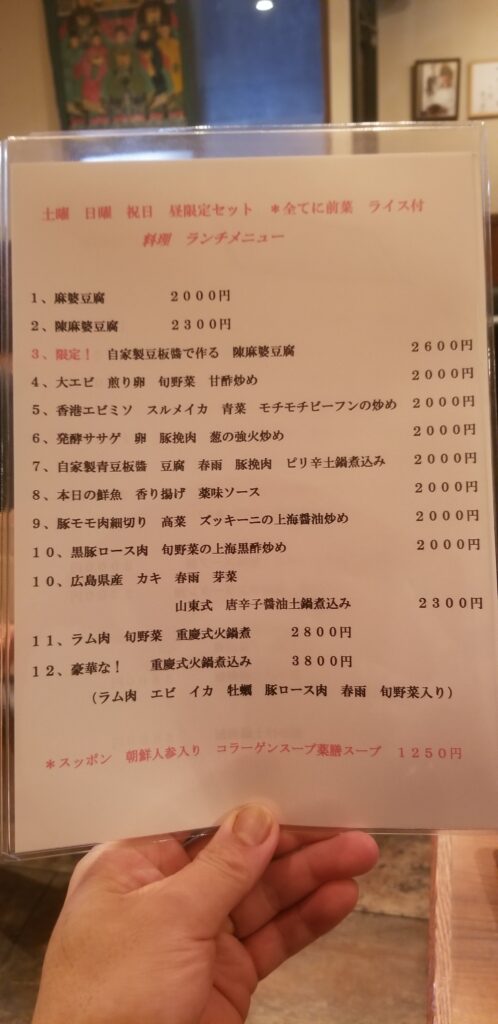 土曜　日曜　祝日　昼限定セット　＊全てに前菜　ライス付
料理　ランチメニュー
１、麻婆豆腐　２０００円
２、陳麻婆豆腐　２３００円
３、限定！　自家製豆板醬で作る　陳麻婆豆腐　２６００円
４、大エビ　煎り卵　旬野菜　甘酢炒め　２０００円
５、香港エビミソ　スルメイカ　青菜　モチモチビーフンの炒め　２０００円
６、発酵ササゲ　卵　豚挽肉　葱の強火炒め　２０００円
７、自家製青豆板醬　豆腐　春雨　豚挽肉　ピリ辛土鍋煮込み　２０００円
８、本日の鮮魚　香り揚げ　薬味ソース　２０００円
９、豚モモ肉細切り　高菜　ズッキーニの上海醬油炒め　２０００円
１０、黒豚ロース肉　旬野菜の上海黒酢炒め　２０００円
１０、広島県産　カキ　春雨　芽菜
山東式　唐辛子醬油土鍋煮込み　２３００円
１１、ラム肉　旬野菜　重慶式火鍋煮　２８００円
１２、豪華な！　重慶式火鍋煮込み　３８００円
（ラム肉　エビ　イカ　牡蠣　豚ロース肉　春雨　旬野菜入り）
＊スッポン　朝鮮人参入り　コラーゲンスープ薬膳スープ　１２５０円